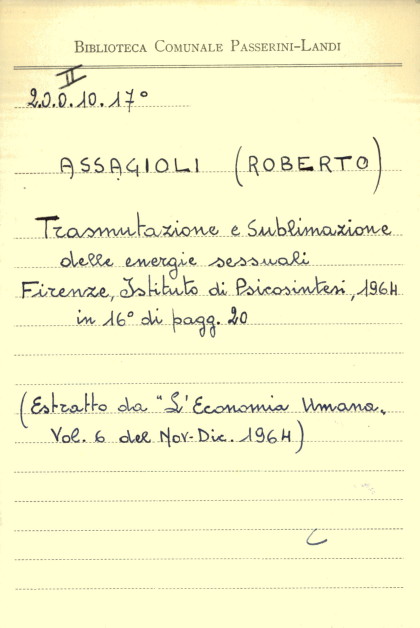 BIBLIOTECA COMUNALE PASSERINI-LANDI
II
2.0.0.10.17°
ASSAGIOLI (ROBERTO)
Trasmutazione e Sublimazione
delle energie sessuali
Firenze, Istituto di Psicosintesi, 1964
in 16° di pagg. 20
(Estratto da "L'Economia Umana„
Vol. 6 del Nov-Dic. 1964)